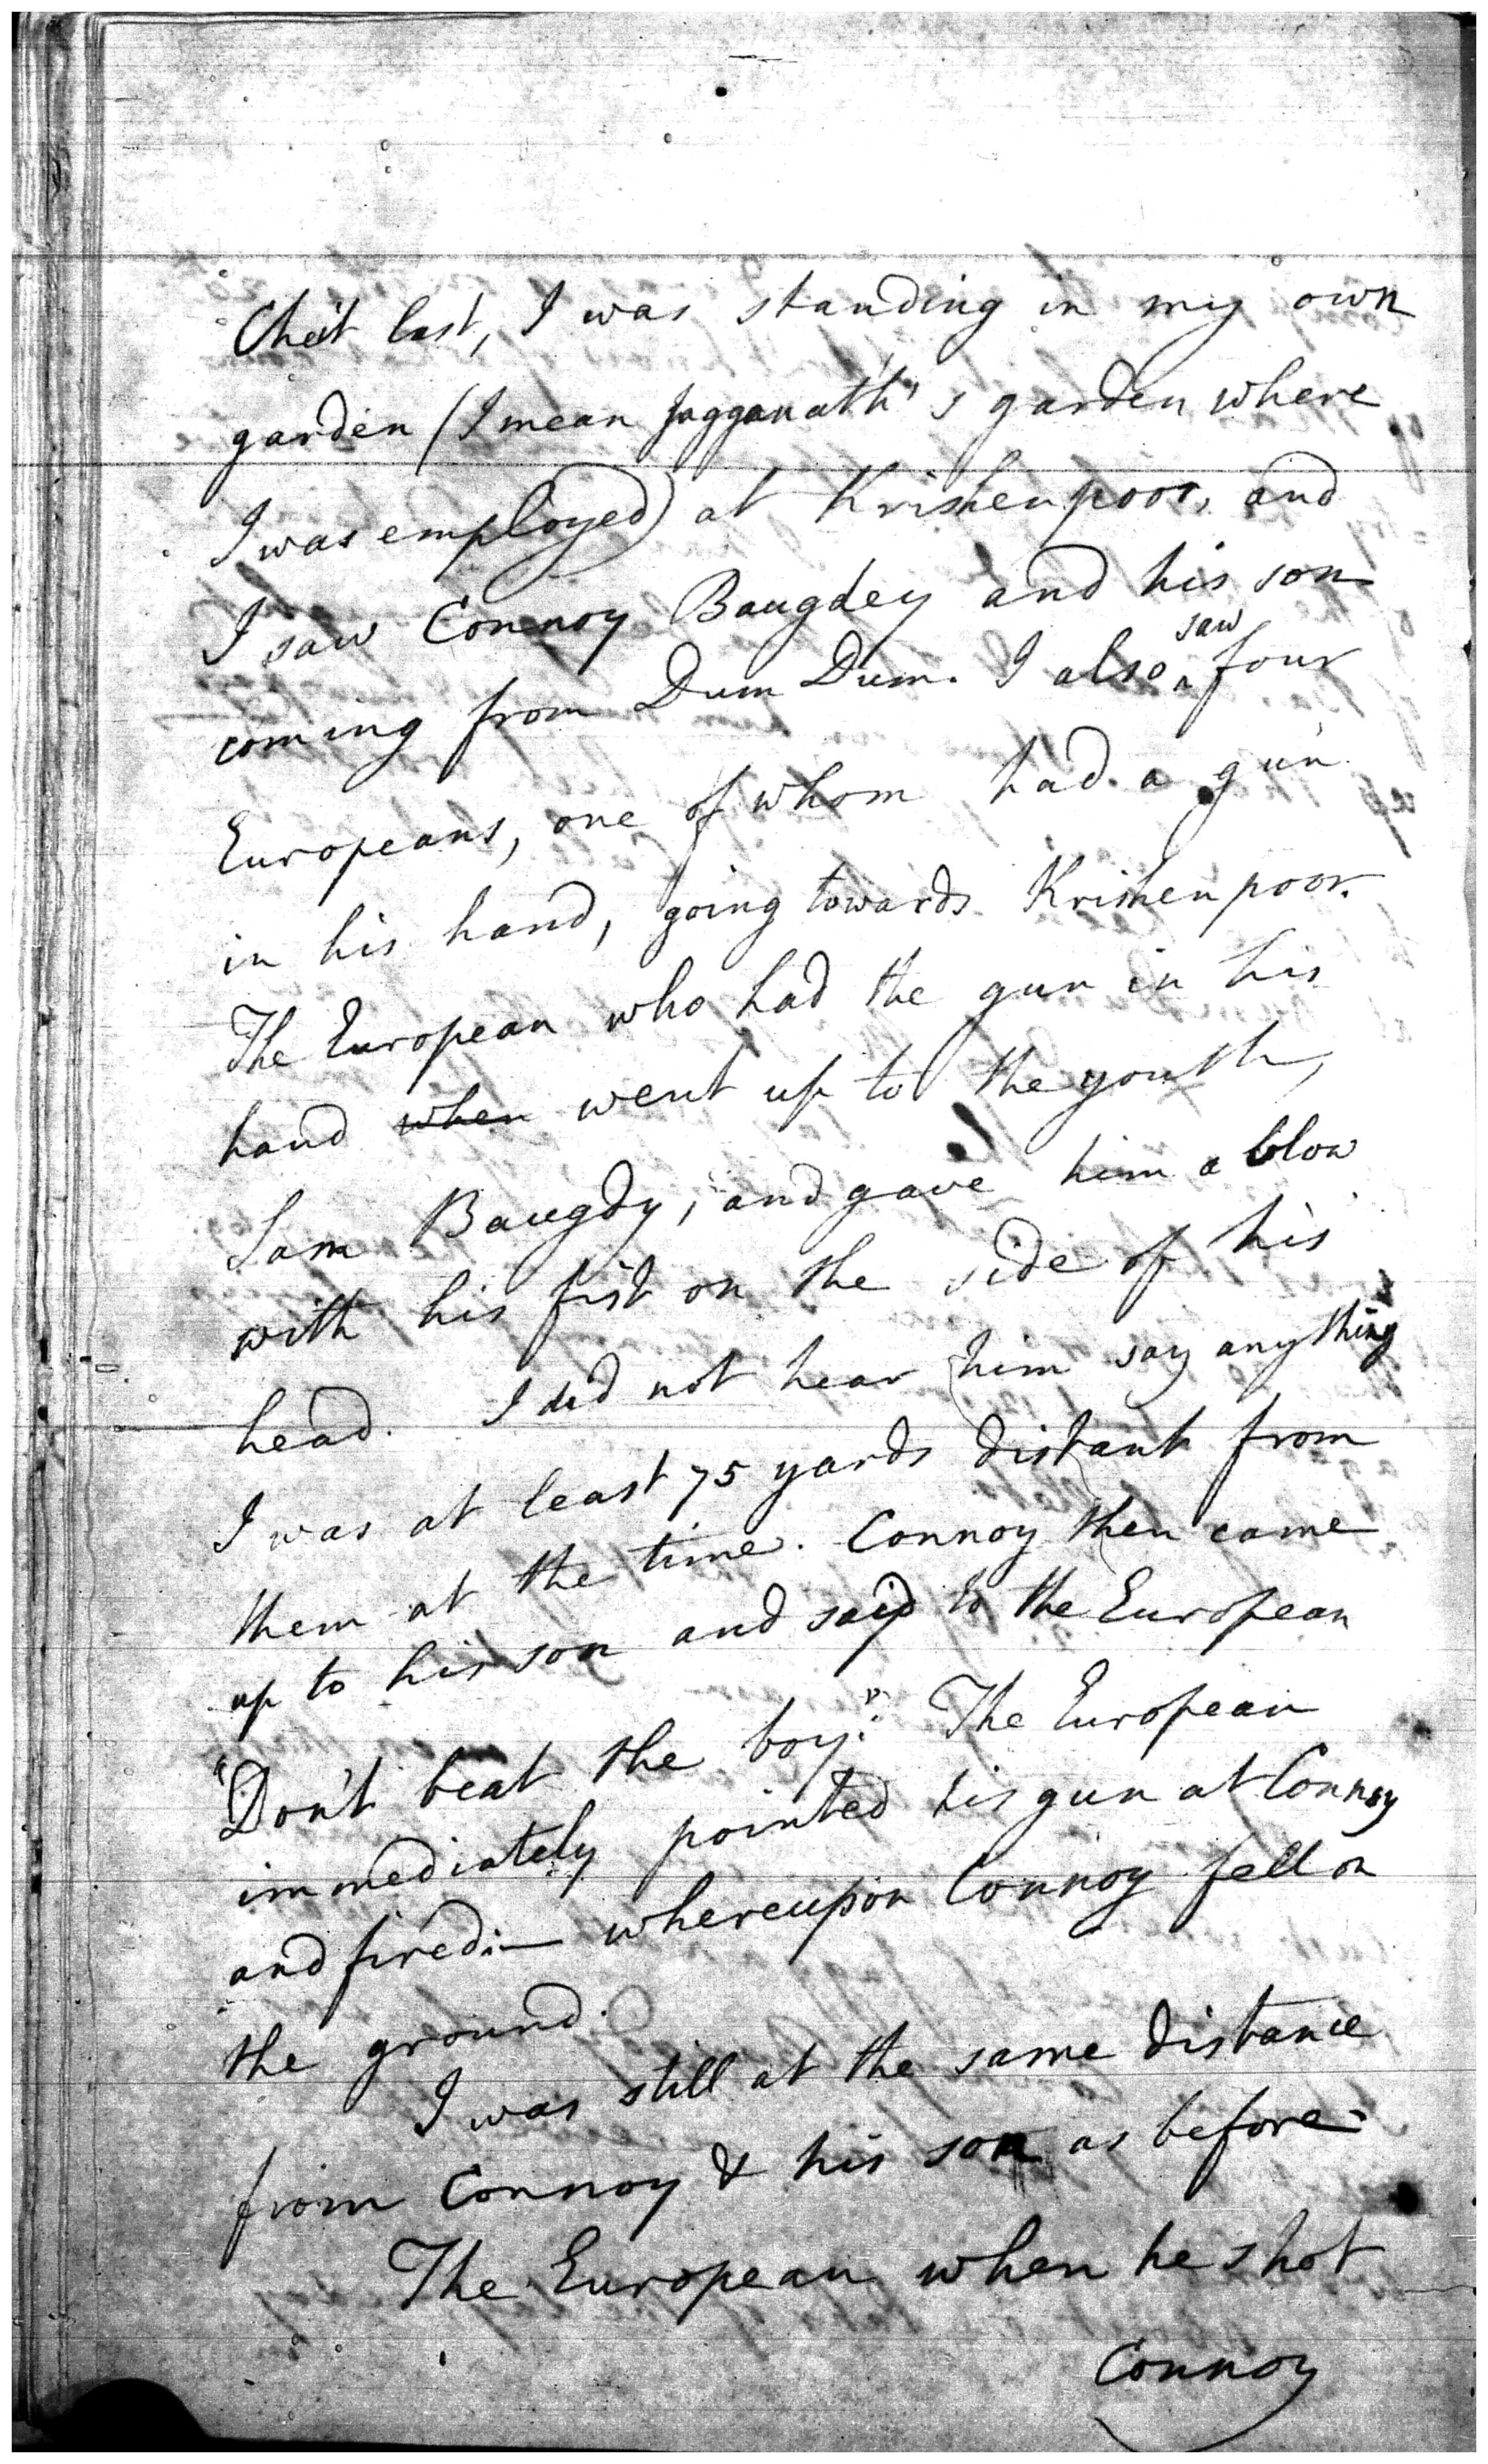 Cheit last, I was standing in my own
garden (I mean Jagganath's garden where
I was employed) at Krishenpoor, and
I saw Connoy Baugdey and his son
coming from Dum Dum. I also saw four
Europeans, one of whom had a gun
in his hand, going towards Krishenpoor.
The European who had the gun in his
hand when went up to the youth,
Sam Baugdy, and gave him a blow
with his fist on the side of his
head. I did not hear him say anything
I was at least 75 yards distant from
them at the time. Connoy then came
up to his son and said to the European
"Don't beat the boy." The European
immediately pointed his gun at Connoy
and fired:— whereupon Connoy fell on
the ground.
I was still at the same distance
from Connoy & his son as before.
The European when he shot
Connoy